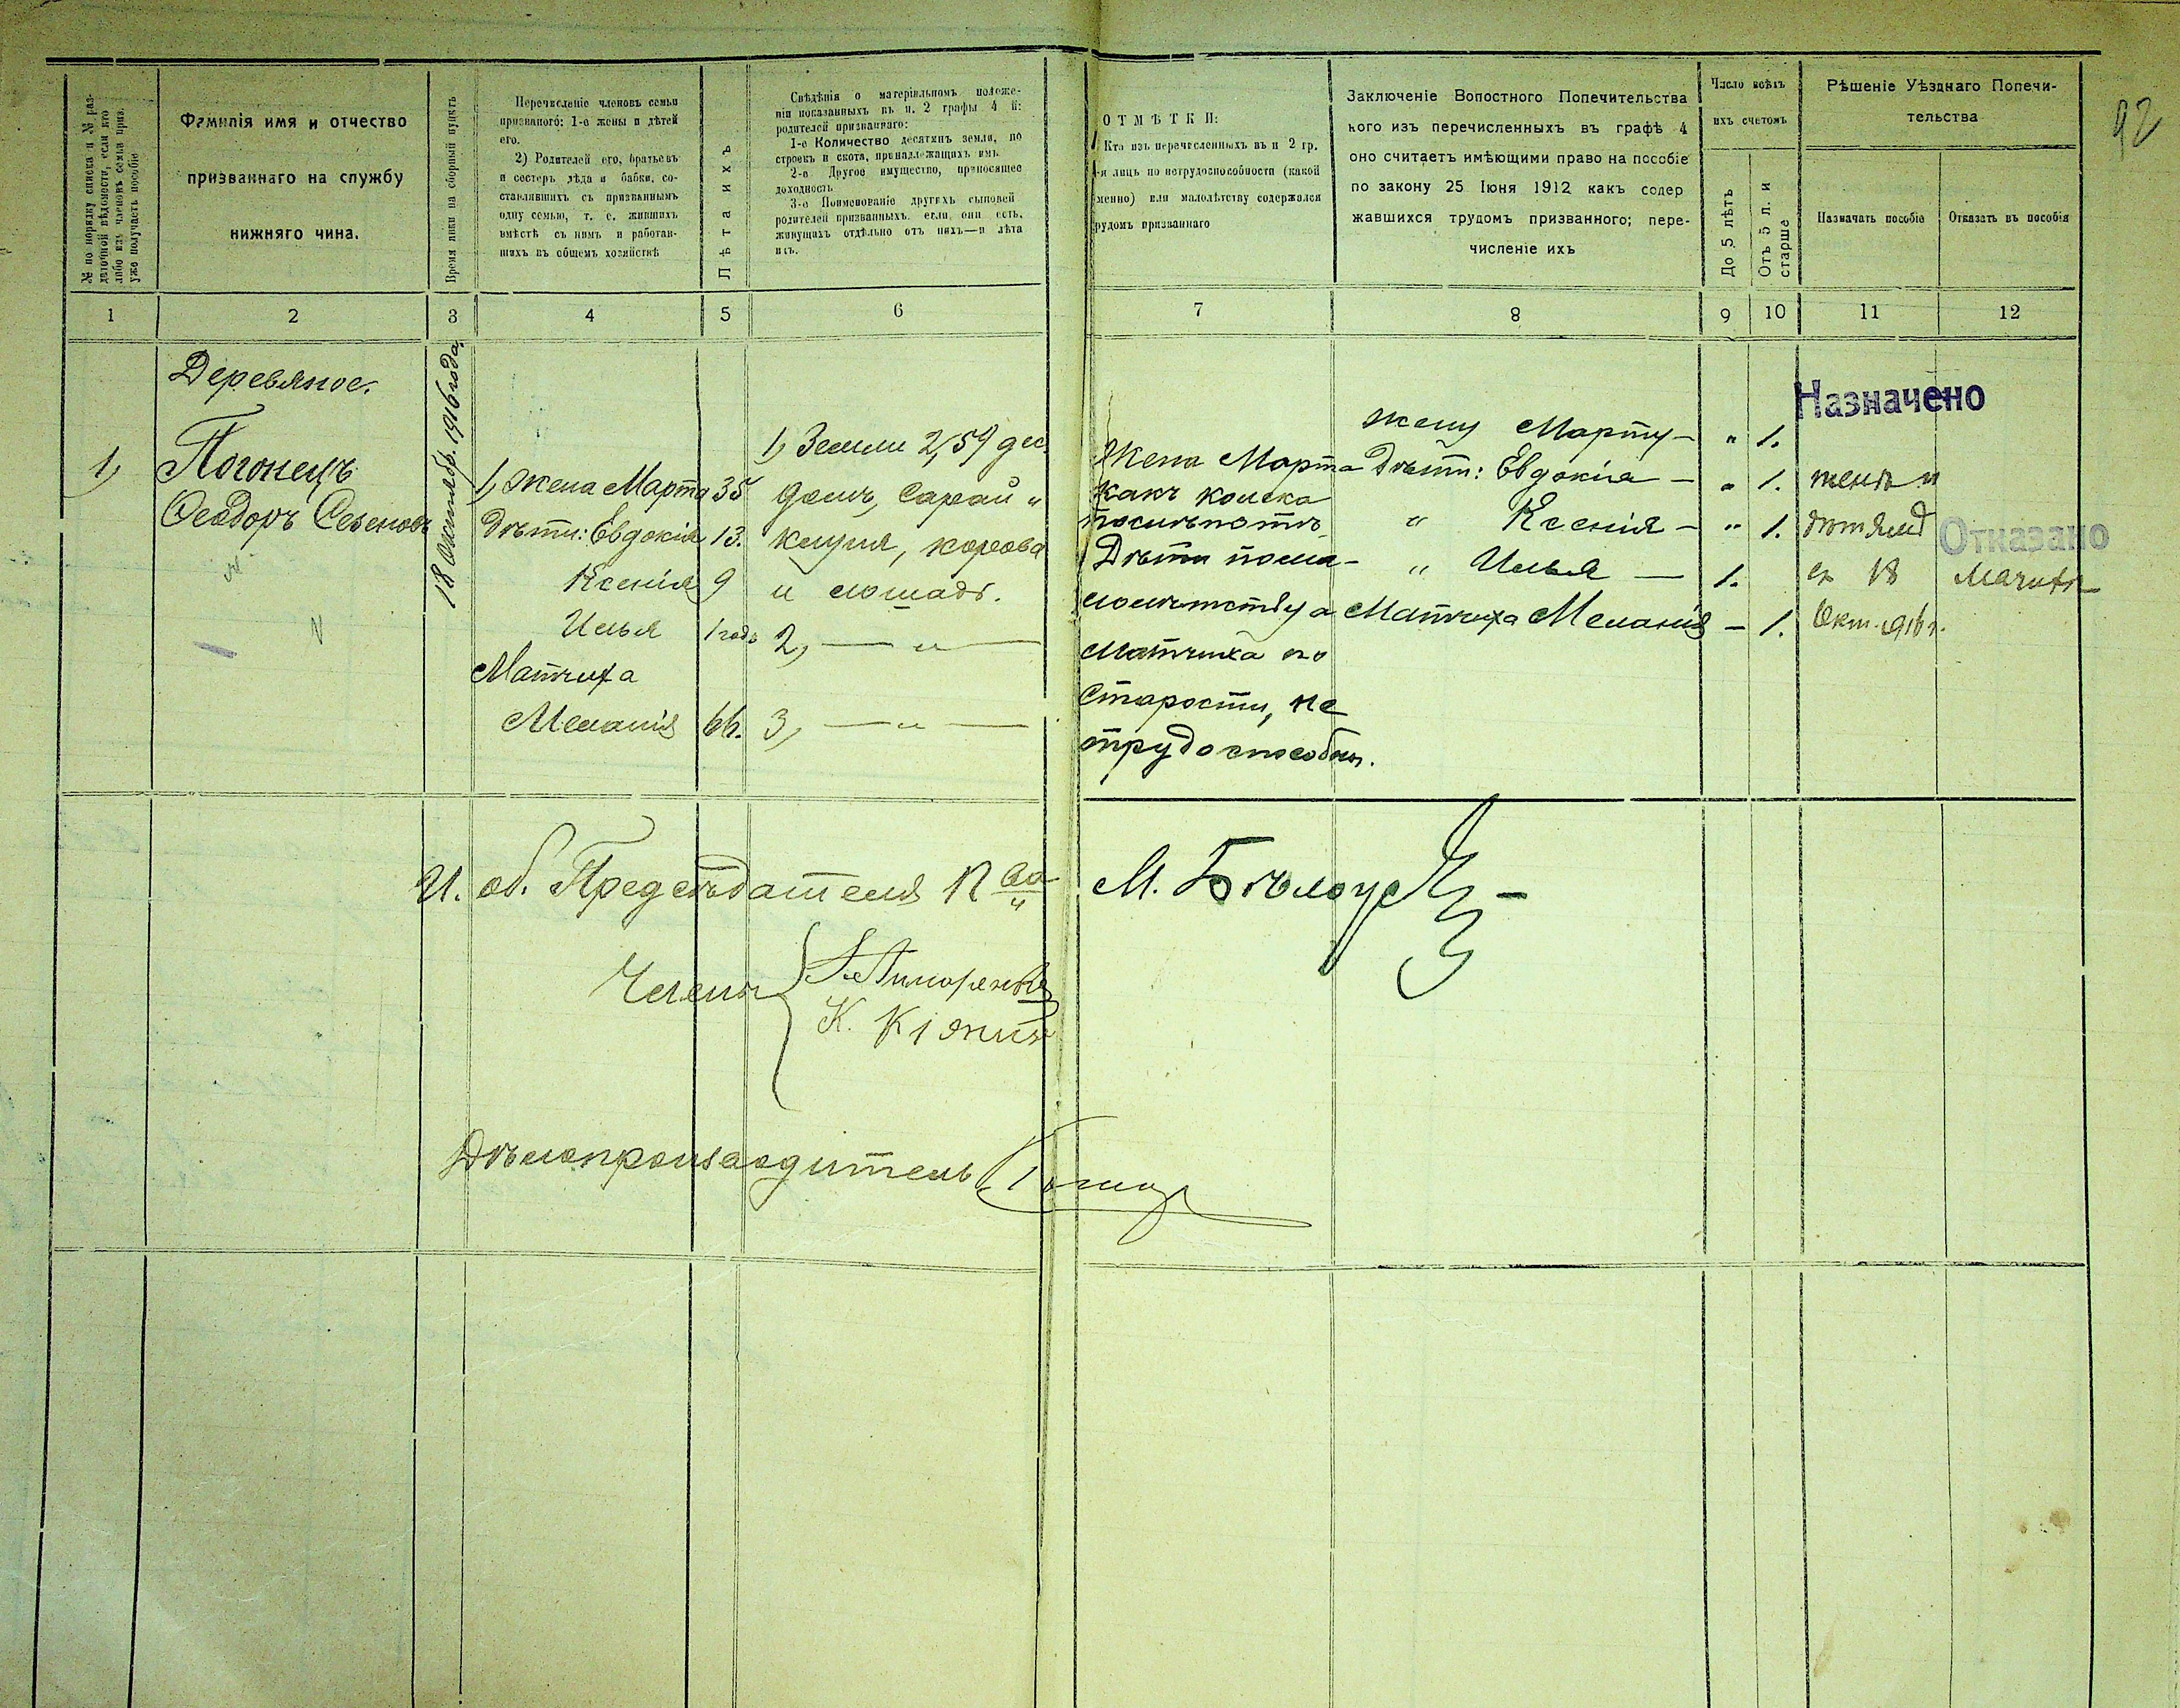 92
№ по порядку списка и № раз-
дѣлочной вѣдомости, если кто
либо изъ членовъ семьи приз.
уже получаетъ пособіе
Фамилія имя и отчество
призваннаго на службу
нижняго чина.
Время явки на сборный пунктъ
Перечисленіе членовъ семьи
призванного: 1-е жены и дѣтей
его.
2) Родителей его, братьевъ
и сестеръ дѣда и бабки, со-
ставлявшихъ съ призваннымъ
одну семью, т. е. жившихъ
вмѣстѣ съ нимъ и работав-
шихъ въ общемъ хозяйствѣ
Лѣта ихъ
Свѣдѣнія о матеріальномъ положе-
ніи показанныхъ въ п. 2 графы 4 й:
родителей призваннаго:
1-е Количество десятинъ земли, по
строекъ и скота, принадлежащихъ имъ.
2-е Другое имущество, приносящее
доходность
3-е Поименованіе другихъ сыновей
родителей призванныхъ, если они есть,
живущихъ отдѣльно отъ нихъ—и лѣта
ихъ.
ОТМѢТКИ:
Кто изъ перечисленныхъ въ п 2 гр.
4-й лицъ по нетрудоспособности (какой
менно) или малолѣтству содержался
рудомъ призваннаго
Заключеніе Вопостного Попечительства
кого изъ перечисленныхъ въ графѣ 4
оно считаетъ имѣющими право на пособіе
по закону 25 Іюня 1912 какъ содер
жавшихся трудомъ призванного; пере-
численіе ихъ
Число всѣхъ
ихъ счетомъ
До 5 лѣтъ
Отъ 5 л. и
старше
Рѣшеніе Уѣзднаго Попечи-
тельства
Назначать пособіе
Отказать въ пособія
1 2 3 4 5 6 7 8 9 10 11 12
Деревяное.
1)
Погонецъ
Феодоръ Семеновъ
18 Октябр. 1916 года
1) Жена Марта 35
Дѣти: Евдокія 13.
Ксенія 9
Илья 1 годъ
Матчиха
Меланія 66.
1) Земли 2,59 дес.
домъ, сарай "
клуня, корова
и лошадь.
2) — " —
3) — " —
Жена Марта
какъ колека
Дѣти по ма-
лолѣтству а
Матчиха по
старости, не
трудоспособны.
жену Марту — " 1.
Дѣти: Евдокія — " 1.
" Ксенія — " 1.
" Илья — 1.
Матчиха Меланія — 1.
Назначено
женѣ и
дѣтямъ
съ 18
Окт. 1916 г.
Отказано
Мачихѣ
И. об. Предсѣдателя
М. Бѣлоус
Члены
К. Кіянъ
Дѣлопроизводитель